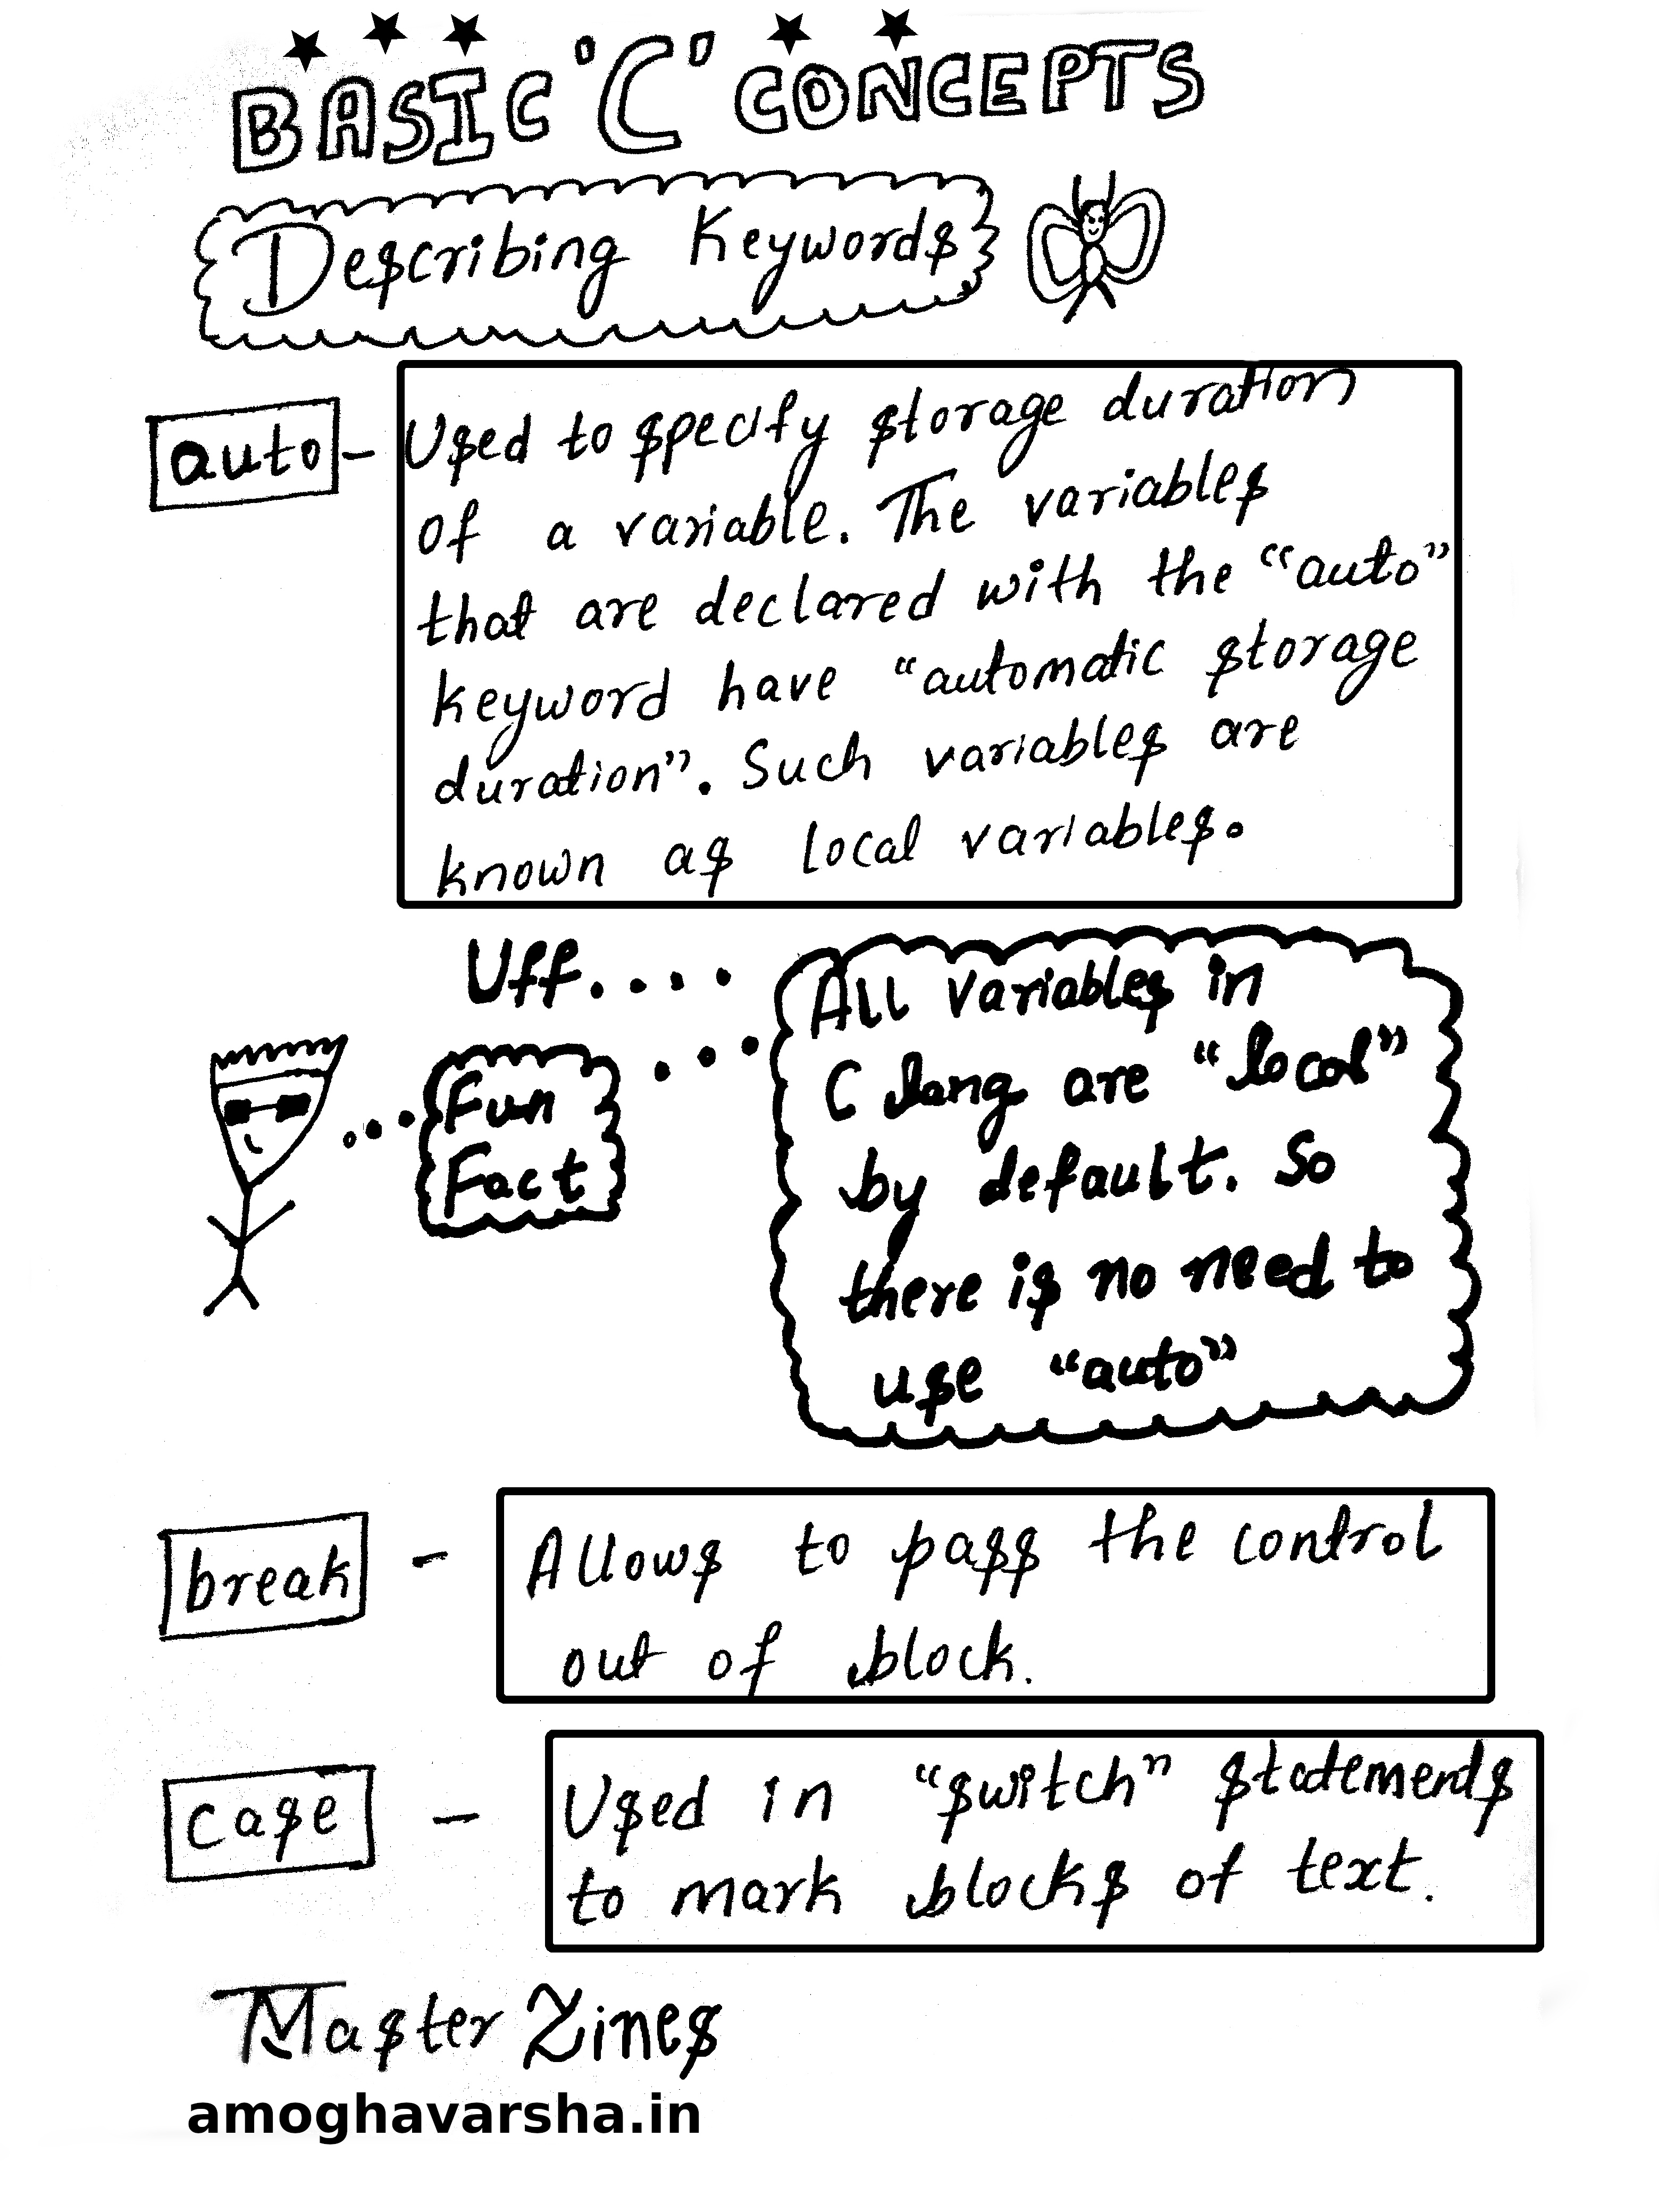 BASIC 'C' CONCEPTS
Describing Keywords
auto - Used to specify storage duration
of a variable. The variables
that are declared with the “auto”
keyword have “automatic storage
duration”. Such variables are
known as local variables.
Uff....
Fun
Fact
All variables in
C lang are “local”
by default. So
there is no need to
use “auto”
break - Allows to pass the control
out of block.
case - Used in “switch” statements
to mark blocks of text.
Master Zines
amoghavarsha.in